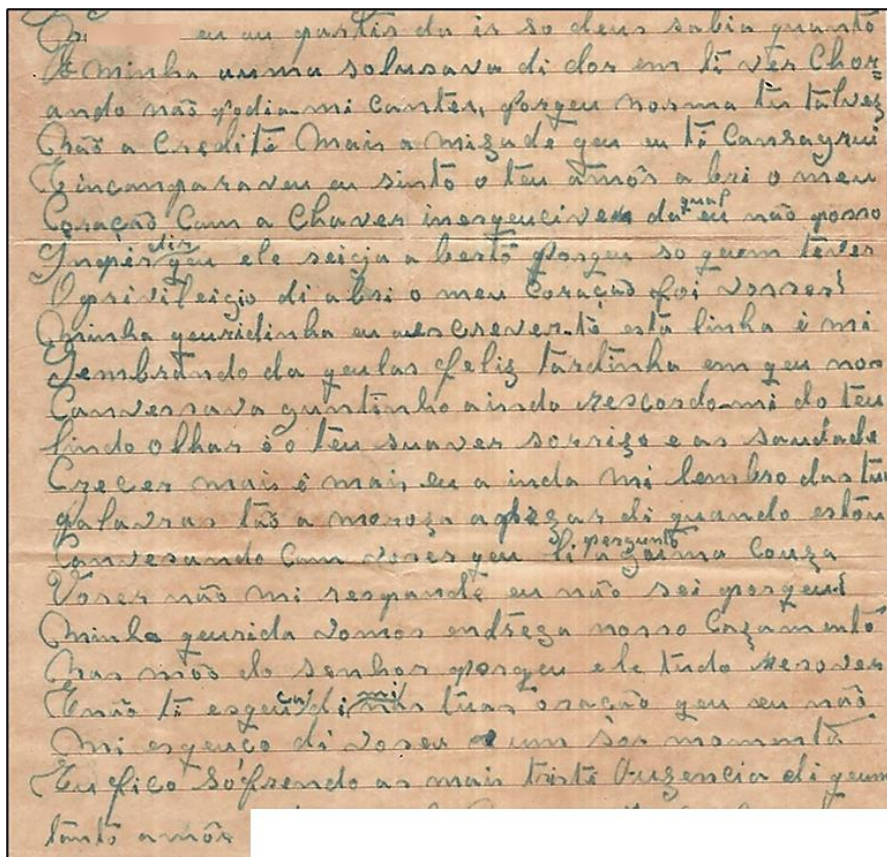 eu au partir da ir so deus sabia quanto
A minha auma solusava di dor em ti ver Chor=
ando não podia mi Canter, porqeu norma tu talvez
Não a Credite Mais a mizade qeu eu ti Cansagrui
E incamparaveu eu sinto o teu amôr a bri o meu
Coração Cam a Chaver inesqeuciver da qual eu não posso
Inpedir qeu ele seicja a berto Porqeu so quem tever
O privileigio di abri o meu Coração foi vosser!
minha qeuridinha eu au escrever-te esta linha é mi
Lembrando da qeulas feliz tardinha em qeu nos
Canversava guntinho ainda rescordo-mi do teu
lindo olhar é o teu suaver sorrizo e as saudade
Crecer mais é mais eu a inda mi lembro das tu
palavras tão a moroza apezar di quando estou
Canvesando Cam voser qeu li pergunto a gauma Couza
Voser não mi respande eu não sei porqeu!
Minha qeurida vamos entrega nosso Cazamento
Nas mão do senhor porqeu ele tudo resover
E não ti esqeuça di mi nas tuas oração qeu eu não
Mi esqeuço di voser um sor momento
Eu fico sófrendo as mais triste Auzencia di qeum
tanto amôr